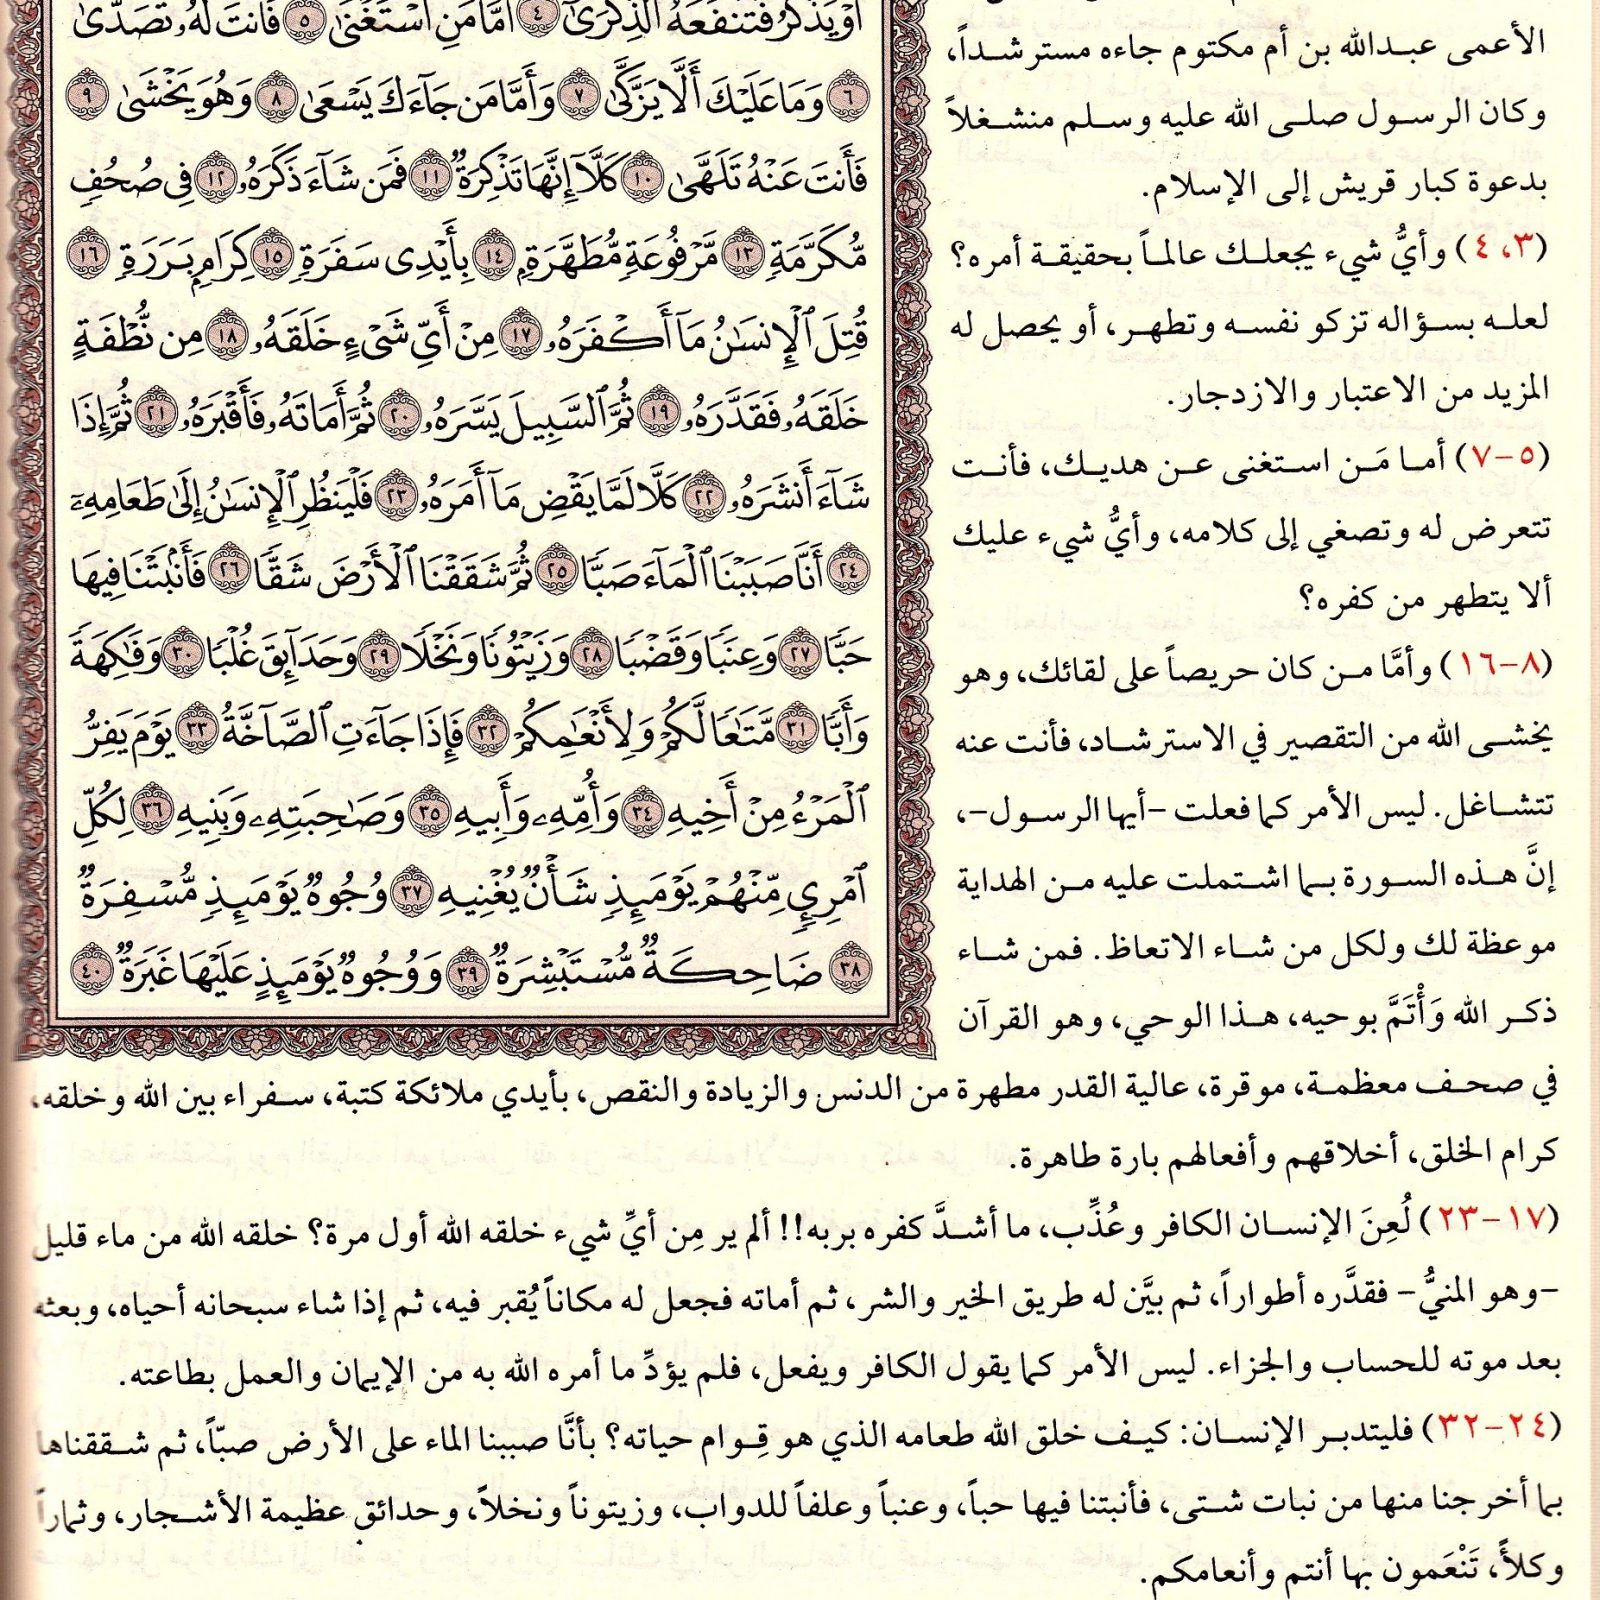 أَوْ يَذَّكَّرُ فَتَنفَعَهُ ٱلذِّكْرَىٰٓ ٤ أَمَّا مَنِ ٱسْتَغْنَىٰ ٥ فَأَنتَ لَهُۥ تَصَدَّىٰ
٦ وَمَا عَلَيْكَ أَلَّا يَزَّكَّىٰ ٧ وَأَمَّا مَن جَآءَكَ يَسْعَىٰ ٨ وَهُوَ يَخْشَىٰ ٩
فَأَنتَ عَنْهُ تَلَهَّىٰ ١٠ كَلَّآ إِنَّهَا تَذْكِرَةٌ ١١ فَمَن شَآءَ ذَكَرَهُۥ ١٢ فِى صُحُفٍ
مُّكَرَّمَةٍ ١٣ مَّرْفُوعَةٍ مُّطَهَّرَةٍۭ ١٤ بِأَيْدِى سَفَرَةٍ ١٥ كِرَامٍۭ بَرَرَةٍ ١٦
قُتِلَ ٱلْإِنسَٰنُ مَآ أَكْفَرَهُۥ ١٧ مِنْ أَىِّ شَىْءٍ خَلَقَهُۥ ١٨ مِن نُّطْفَةٍ
خَلَقَهُۥ فَقَدَّرَهُۥ ١٩ ثُمَّ ٱلسَّبِيلَ يَسَّرَهُۥ ٢٠ ثُمَّ أَمَاتَهُۥ فَأَقْبَرَهُۥ ٢١ ثُمَّ إِذَا
شَآءَ أَنشَرَهُۥ ٢٢ كَلَّا لَمَّا يَقْضِ مَآ أَمَرَهُۥ ٢٣ فَلْيَنظُرِ ٱلْإِنسَٰنُ إِلَىٰ طَعَامِهِۦٓ
٢٤ أَنَّا صَبَبْنَا ٱلْمَآءَ صَبًّا ٢٥ ثُمَّ شَقَقْنَا ٱلْأَرْضَ شَقًّا ٢٦ فَأَنۢبَتْنَا فِيهَا
حَبًّا ٢٧ وَعِنَبًا وَقَضْبًا ٢٨ وَزَيْتُونًا وَنَخْلًا ٢٩ وَحَدَآئِقَ غُلْبًا ٣٠ وَفَٰكِهَةً
وَأَبًّا ٣١ مَّتَٰعًا لَّكُمْ وَلِأَنْعَٰمِكُمْ ٣٢ فَإِذَا جَآءَتِ ٱلصَّآخَّةُ ٣٣ يَوْمَ يَفِرُّ
ٱلْمَرْءُ مِنْ أَخِيهِ ٣٤ وَأُمِّهِۦ وَأَبِيهِ ٣٥ وَصَٰحِبَتِهِۦ وَبَنِيهِ ٣٦ لِكُلِّ
ٱمْرِئٍ مِّنْهُمْ يَوْمَئِذٍ شَأْنٌ يُغْنِيهِ ٣٧ وُجُوهٌ يَوْمَئِذٍ مُّسْفِرَةٌ
٣٨ ضَاحِكَةٌ مُّسْتَبْشِرَةٌ ٣٩ وَوُجُوهٌ يَوْمَئِذٍ عَلَيْهَا غَبَرَةٌ ٤٠
الأعمى عبدالله بن أم مكتوم جاءه مسترشداً،
وكان الرسول صلى الله عليه وسلم منشغلاً
بدعوة كبار قريش إلى الإسلام.
(٣، ٤) وأيُّ شيء يجعلك عالماً بحقيقة أمره؟
لعله بسؤاله تزكو نفسه وتطهر، أو يحصل له
المزيد من الاعتبار والازدجار.
(٥-٧) أما مَن استغنى عن هديك، فأنت
تتعرض له وتصغي إلى كلامه، وأيُّ شيء عليك
ألا يتطهر من كفره؟
(٨-١٦) وأمَّا من كان حريصاً على لقائك، وهو
يخشى الله من التقصير في الاسترشاد، فأنت عنه
تتشاغل. ليس الأمر كما فعلت -أيها الرسول-،
إنَّ هذه السورة بما اشتملت عليه من الهداية
موعظة لك ولكل من شاء الاتعاظ. فمن شاء
ذكر الله وَأْتَمَّ بوحيه، هذا الوحي، وهو القرآن
في صحف معظمة، موقرة، عالية القدر مطهرة من الدنس والزيادة والنقص، بأيدي ملائكة كتبة، سفراء بين الله وخلقه،
كرام الخلق، أخلاقهم وأفعالهم بارة طاهرة.
(١٧-٢٣) لُعِنَ الإنسان الكافر وعُذِّب، ما أشدَّ كفره بربه!! ألم ير مِن أيِّ شيء خلقه الله أول مرة؟ خلقه الله من ماء قليل
-وهو المنيُّ- فقدَّره أطواراً، ثم بيَّن له طريق الخير والشر، ثم أماته فجعل له مكاناً يُقبر فيه، ثم إذا شاء سبحانه أحياه، وبعثه
بعد موته للحساب والجزاء. ليس الأمر كما يقول الكافر ويفعل، فلم يؤدِّ ما أمره الله به من الإيمان والعمل بطاعته.
(٢٤-٣٢) فليتدبر الإنسان: كيف خلق الله طعامه الذي هو قِوام حياته؟ بأنَّا صببنا الماء على الأرض صبّاً، ثم شققناها
بما أخرجنا منها من نبات شتى، فأنبتنا فيها حباً، وعنباً وعلفاً للدواب، وزيتوناً ونخلاً، وحدائق عظيمة الأشجار، وثماراً
وكلأً، تَنْعَمون بها أنتم وأنعامكم.